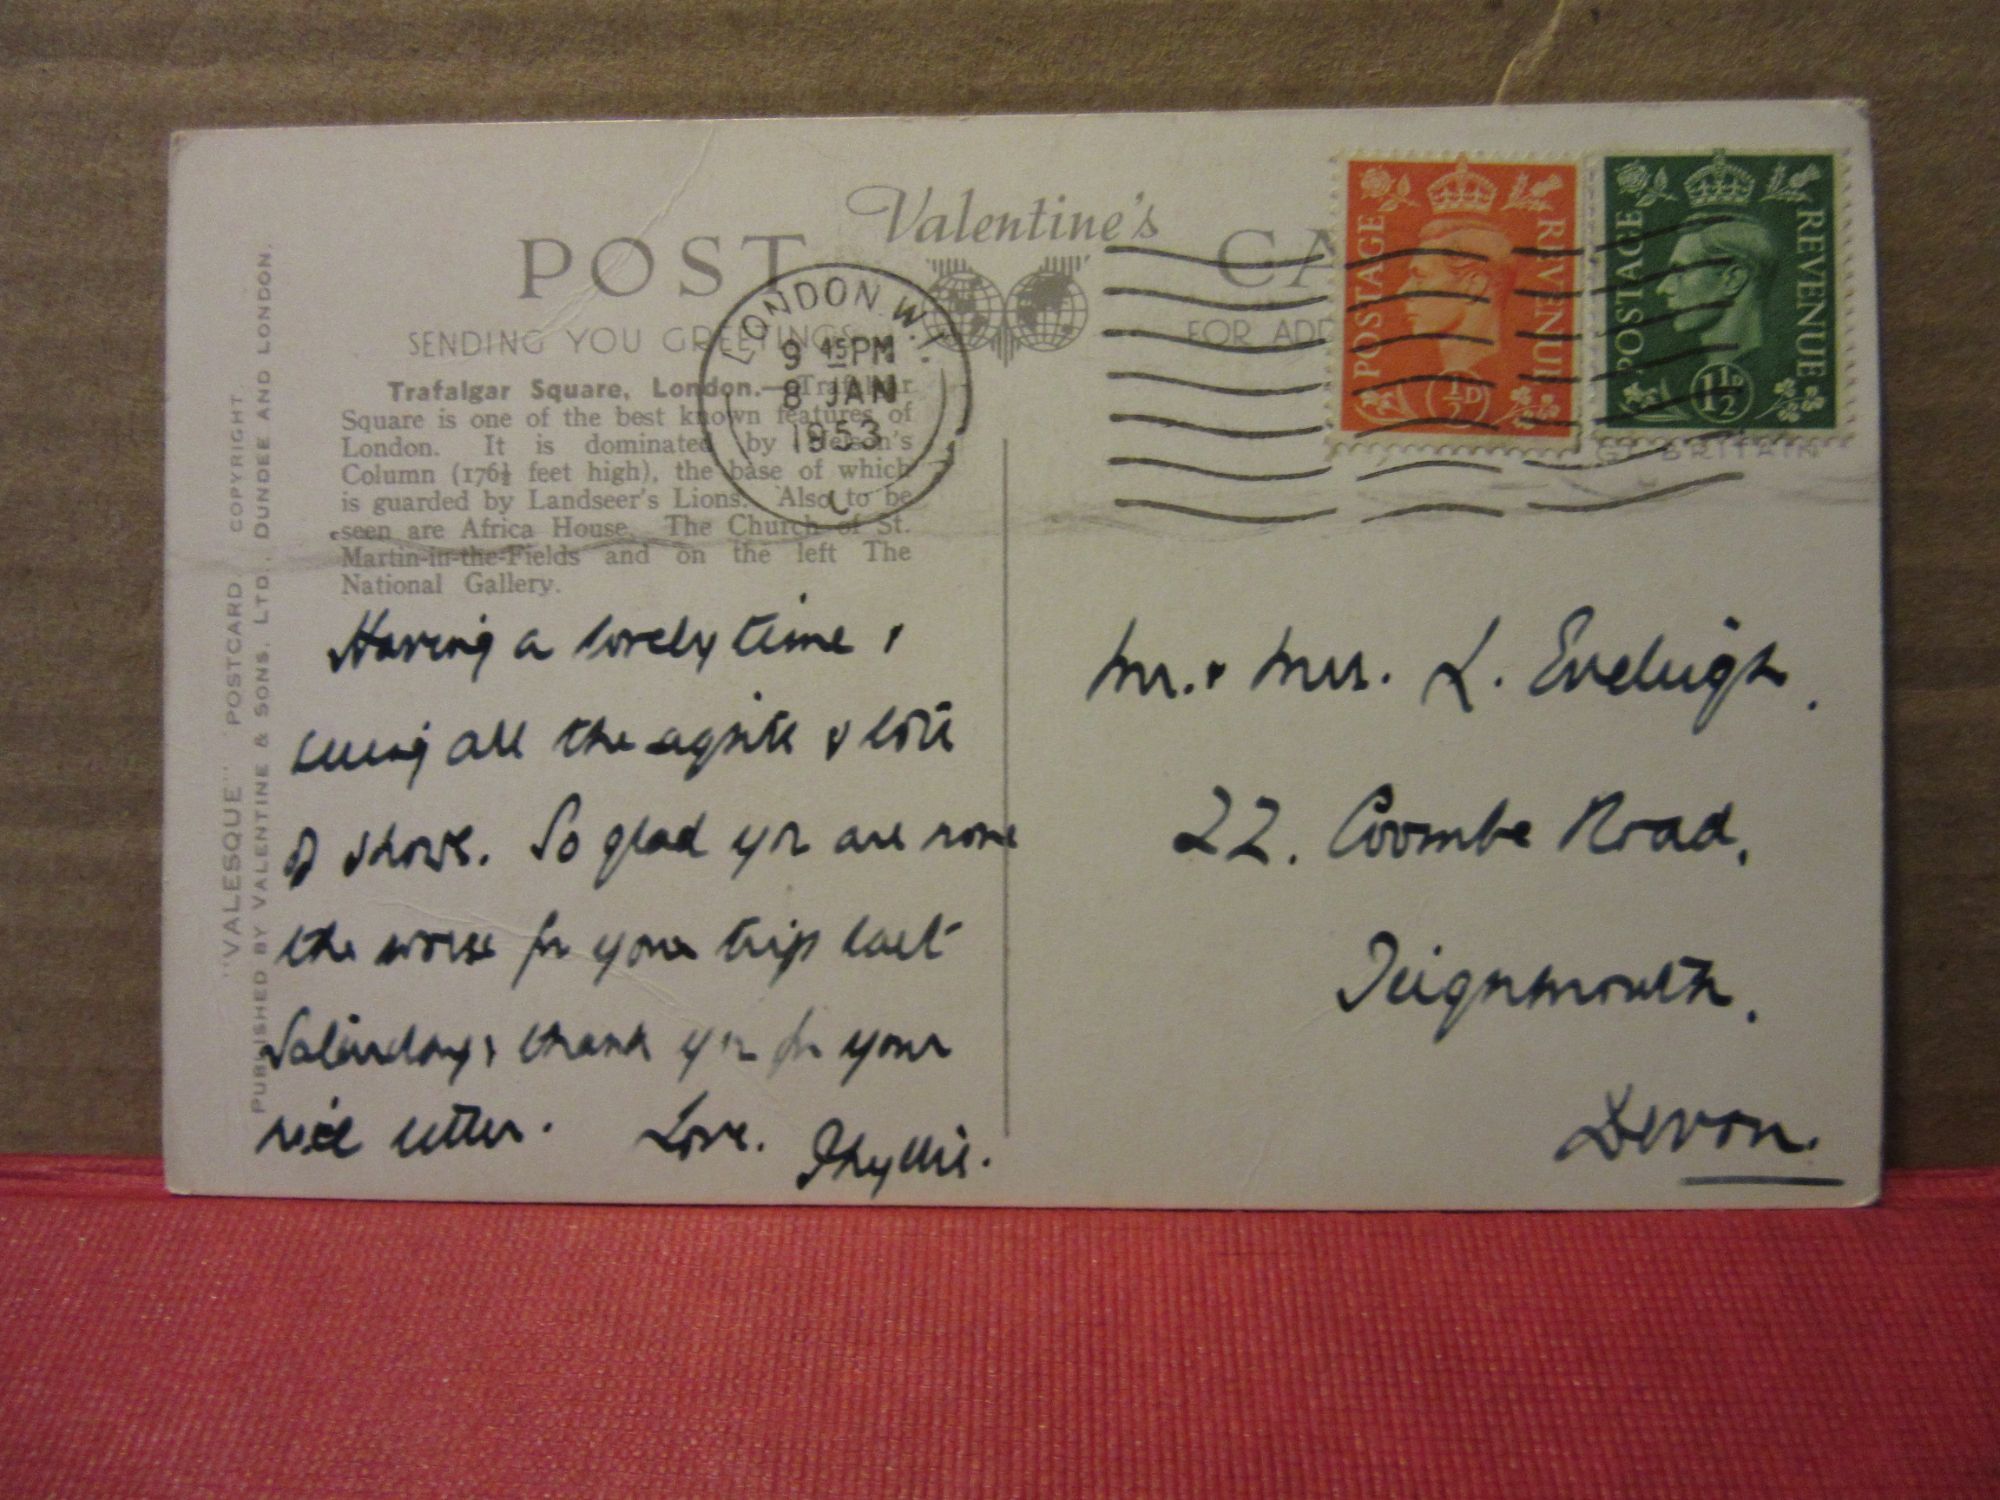 Valentine's
POST CA
SENDING YOU GREETINGS
FOR ADD
LONDON. W.1.
9 45 PM
8 JAN
1953
POSTAGE REVENUE
½D
POSTAGE REVENUE
1½D
GT. BRITAIN
Trafalgar Square, London.—Trafalgar
Square is one of the best known features of
London. It is dominated by Nelson's
Column (176½ feet high), the base of which
is guarded by Landseer's Lions. Also to be
seen are Africa House, The Church of St.
Martin-in-the-Fields and on the left The
National Gallery.
"VALESQUE" POSTCARD. COPYRIGHT.
PUBLISHED BY VALENTINE & SONS, LTD., DUNDEE AND LONDON.
Having a lovely time,
seeing all the sights & lots
of shows. So glad you are none
the worse for your trip last
Saturday, thank you for your
nice letter. Love. Phyllis.
Mr. & Mrs. L. Eveleigh.
22. Coombe Road,
Teignmouth.
Devon.